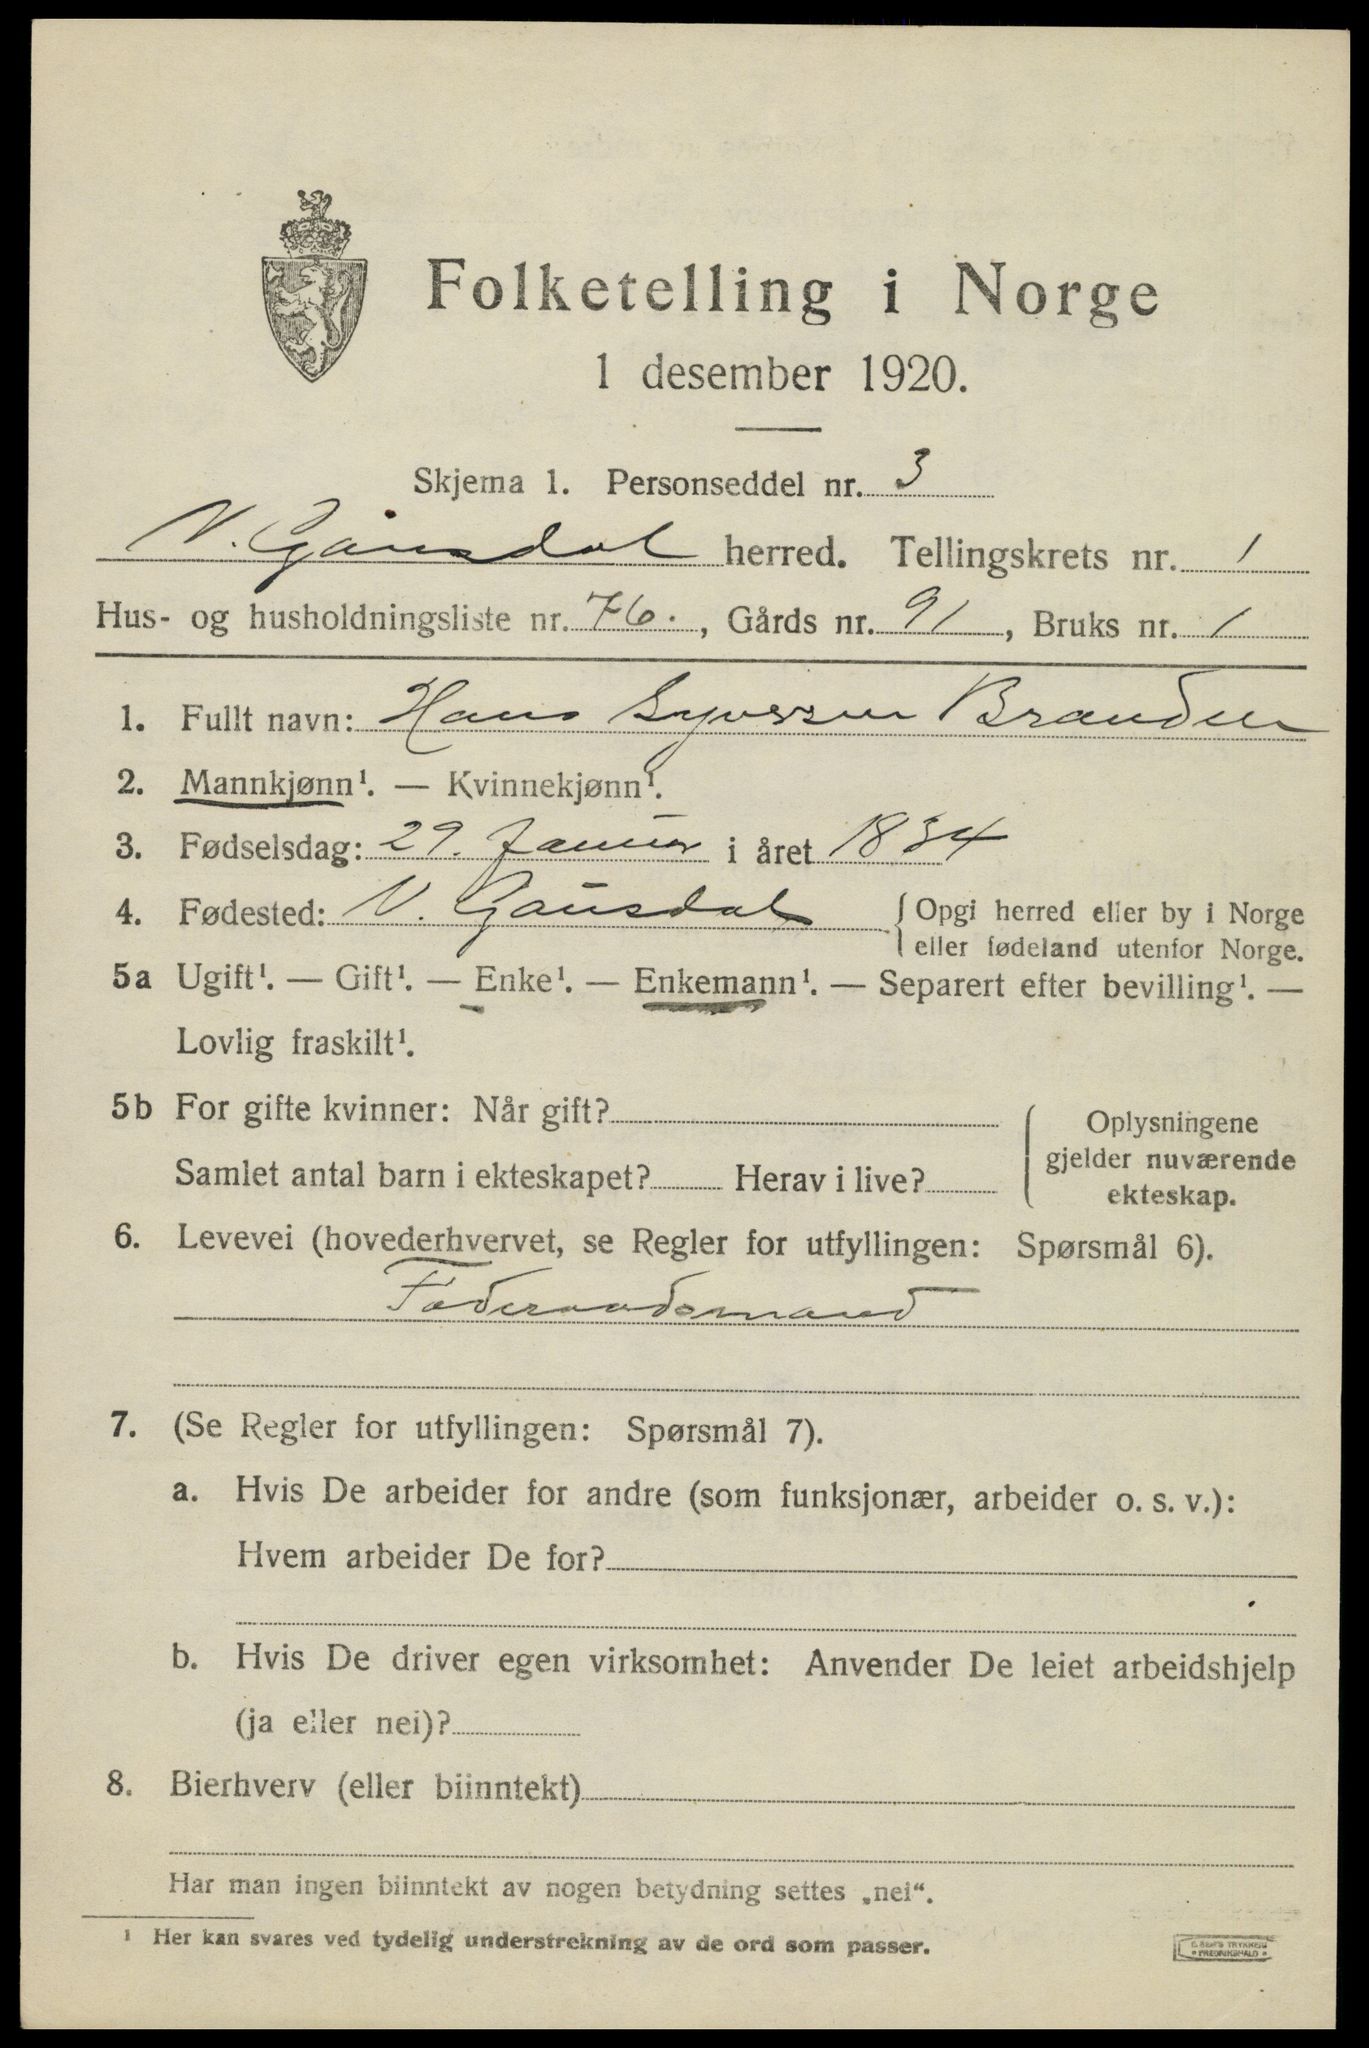 Folketelling i Norge
1 desember 1920.
Skjema 1. Personseddel nr. 3
V. Gausdal herred. Tellingskrets nr. 1
Hus- og husholdningsliste nr. 76. , Gårds nr. 91 , Bruks nr. 1
1. Fullt navn: Hans Syversen Branden
2. Mannkjønn¹. — Kvinnekjønn¹.
3. Fødselsdag: 29. Januar i året 1834
4. Fødested: V. Gausdal { Opgi herred eller by i Norge
eller fødeland utenfor Norge.
5a Ugift¹. — Gift¹. — Enke¹. — Enkemann¹. — Separert efter bevilling¹. —
Lovlig fraskilt¹.
5b For gifte kvinner: Når gift?
Samlet antal barn i ekteskapet? Herav i live?
Oplysningene
gjelder nuværende
ekteskap.
6. Levevei (hovederhvervet, se Regler for utfyllingen: Spørsmål 6).
Føderaadsmand
7. (Se Regler for utfyllingen: Spørsmål 7).
a. Hvis De arbeider for andre (som funksjonær, arbeider o. s. v.):
Hvem arbeider De for?
b. Hvis De driver egen virksomhet: Anvender De leiet arbeidshjelp
(ja eller nei)?
8. Bierhverv (eller biinntekt)
Har man ingen biinntekt av nogen betydning settes „nei“.
¹ Her kan svares ved tydelig understrekning av de ord som passer.